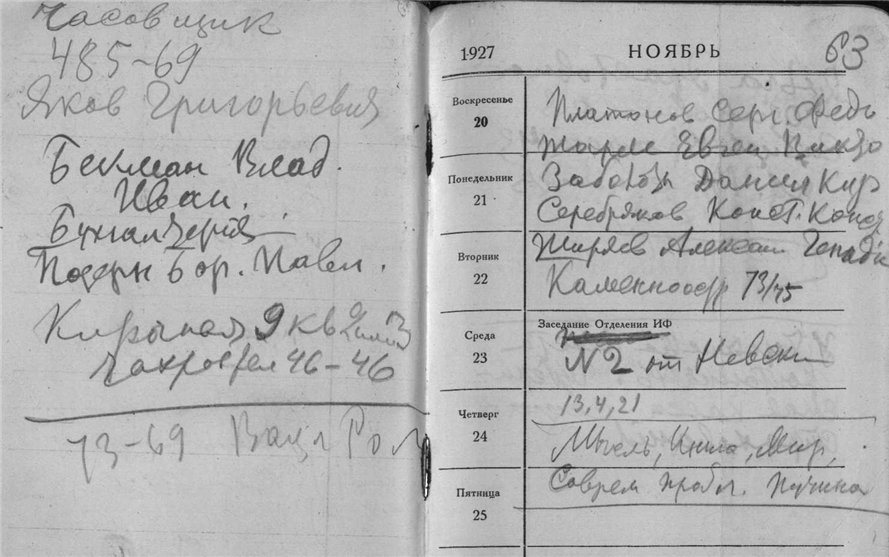 Часовщик
485-69
Яков Григорьевич
Бекман Влад.
Иван.
Бухгалтерия
Подерн Бор. Павл.
Кирочная 9 кв
46-46
73-69 Вацл Ром
1927 НОЯБРЬ 63
Воскресенье
20
Платонов Серг. Федо
Евген.
Понедельник
21
Данил Кир
Серебряков Конст. Конст
Вторник
22
Ширяев Алексан Генадие
Каменноостр 73/75
Среда
23
Заседание Отделения ИФ
N2 от Невски
Четверг
24
13, 4, 21
Мысль, Мир,
Пятница
25
Соврем пробл. Пучина